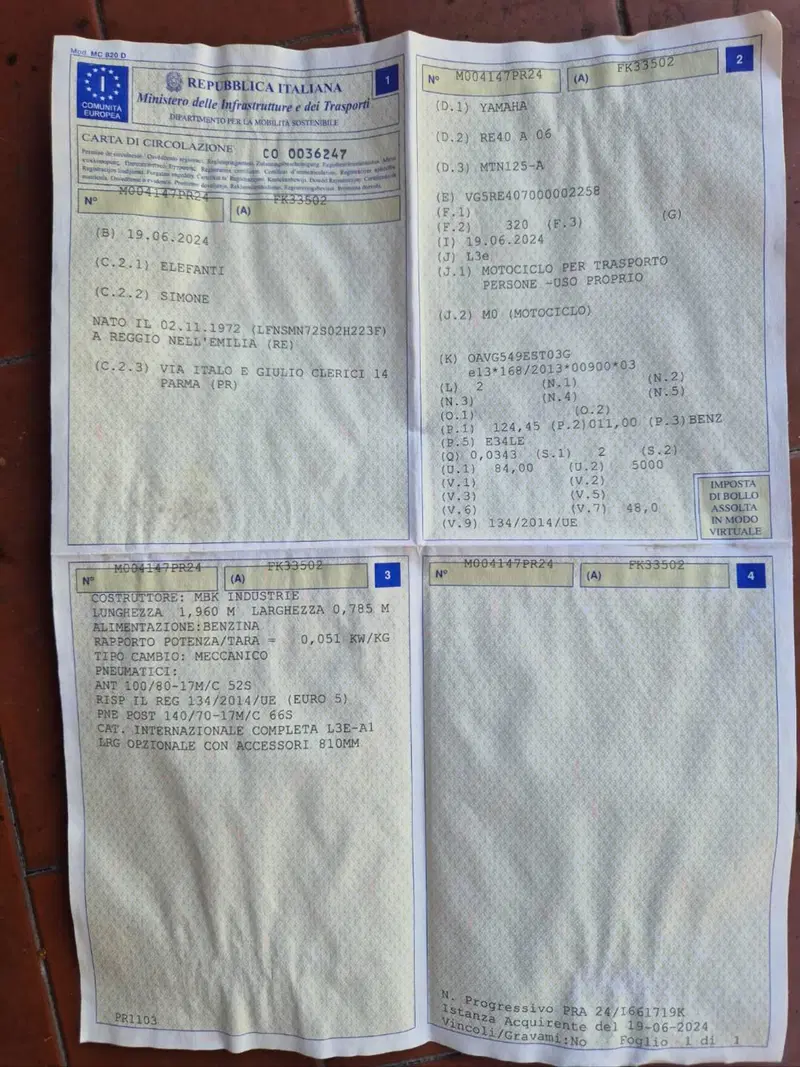 Mod. MC 820 D
I
COMUNITÀ
EUROPEA
REPUBBLICA ITALIANA
Ministero delle Infrastrutture e dei Trasporti
DIPARTIMENTO PER LA MOBILITÀ SOSTENIBILE
1
CARTA DI CIRCOLAZIONE
CO 0036247
N° M004147PR24
(A) FK33502
(B) 19.06.2024
(C.2.1) ELEFANTI
(C.2.2) SIMONE
NATO IL 02.11.1972 (LFNSMN72S02H223F)
A REGGIO NELL'EMILIA (RE)
(C.2.3) VIA ITALO E GIULIO CLERICI 14
PARMA (PR)
N° M004147PR24
(A) FK33502
2
(D.1) YAMAHA
(D.2) RE40 A 06
(D.3) MTN125-A
(E) VG5RE407000002258
(F.1)
(G)
(F.2) 320 (F.3)
(I) 19.06.2024
(J) L3e
(J.1) MOTOCICLO PER TRASPORTO
PERSONE -USO PROPRIO
(J.2) M0 (MOTOCICLO)
(K) OAVG549EST03G
e13*168/2013*00900*03
(L) 2 (N.1) (N.2)
(N.3) (N.4) (N.5)
(O.1) (O.2)
(P.1) 124,45 (P.2)011,00 (P.3)BENZ
(P.5) E34LE
(Q) 0,0343 (S.1) 2 (S.2)
(U.1) 84,00 (U.2) 5000
(V.1) (V.2)
(V.3) (V.5)
(V.6) (V.7) 48,0
(V.9) 134/2014/UE
IMPOSTA
DI BOLLO
ASSOLTA
IN MODO
VIRTUALE
N° M004147PR24
(A) FK33502
3
COSTRUTTORE: MBK INDUSTRIE
LUNGHEZZA 1,960 M LARGHEZZA 0,785 M
ALIMENTAZIONE:BENZINA
RAPPORTO POTENZA/TARA = 0,051 KW/KG
TIPO CAMBIO: MECCANICO
PNEUMATICI:
ANT 100/80-17M/C 52S
RISP IL REG 134/2014/UE (EURO 5)
PNE POST 140/70-17M/C 66S
CAT. INTERNAZIONALE COMPLETA L3E-A1
LRG OPZIONALE CON ACCESSORI 810MM
PR1103
N° M004147PR24
(A) FK33502
4
N. Progressivo PRA 24/I661719K
Istanza Acquirente del 19-06-2024
Vincoli/Gravami:No Foglio 1 di 1